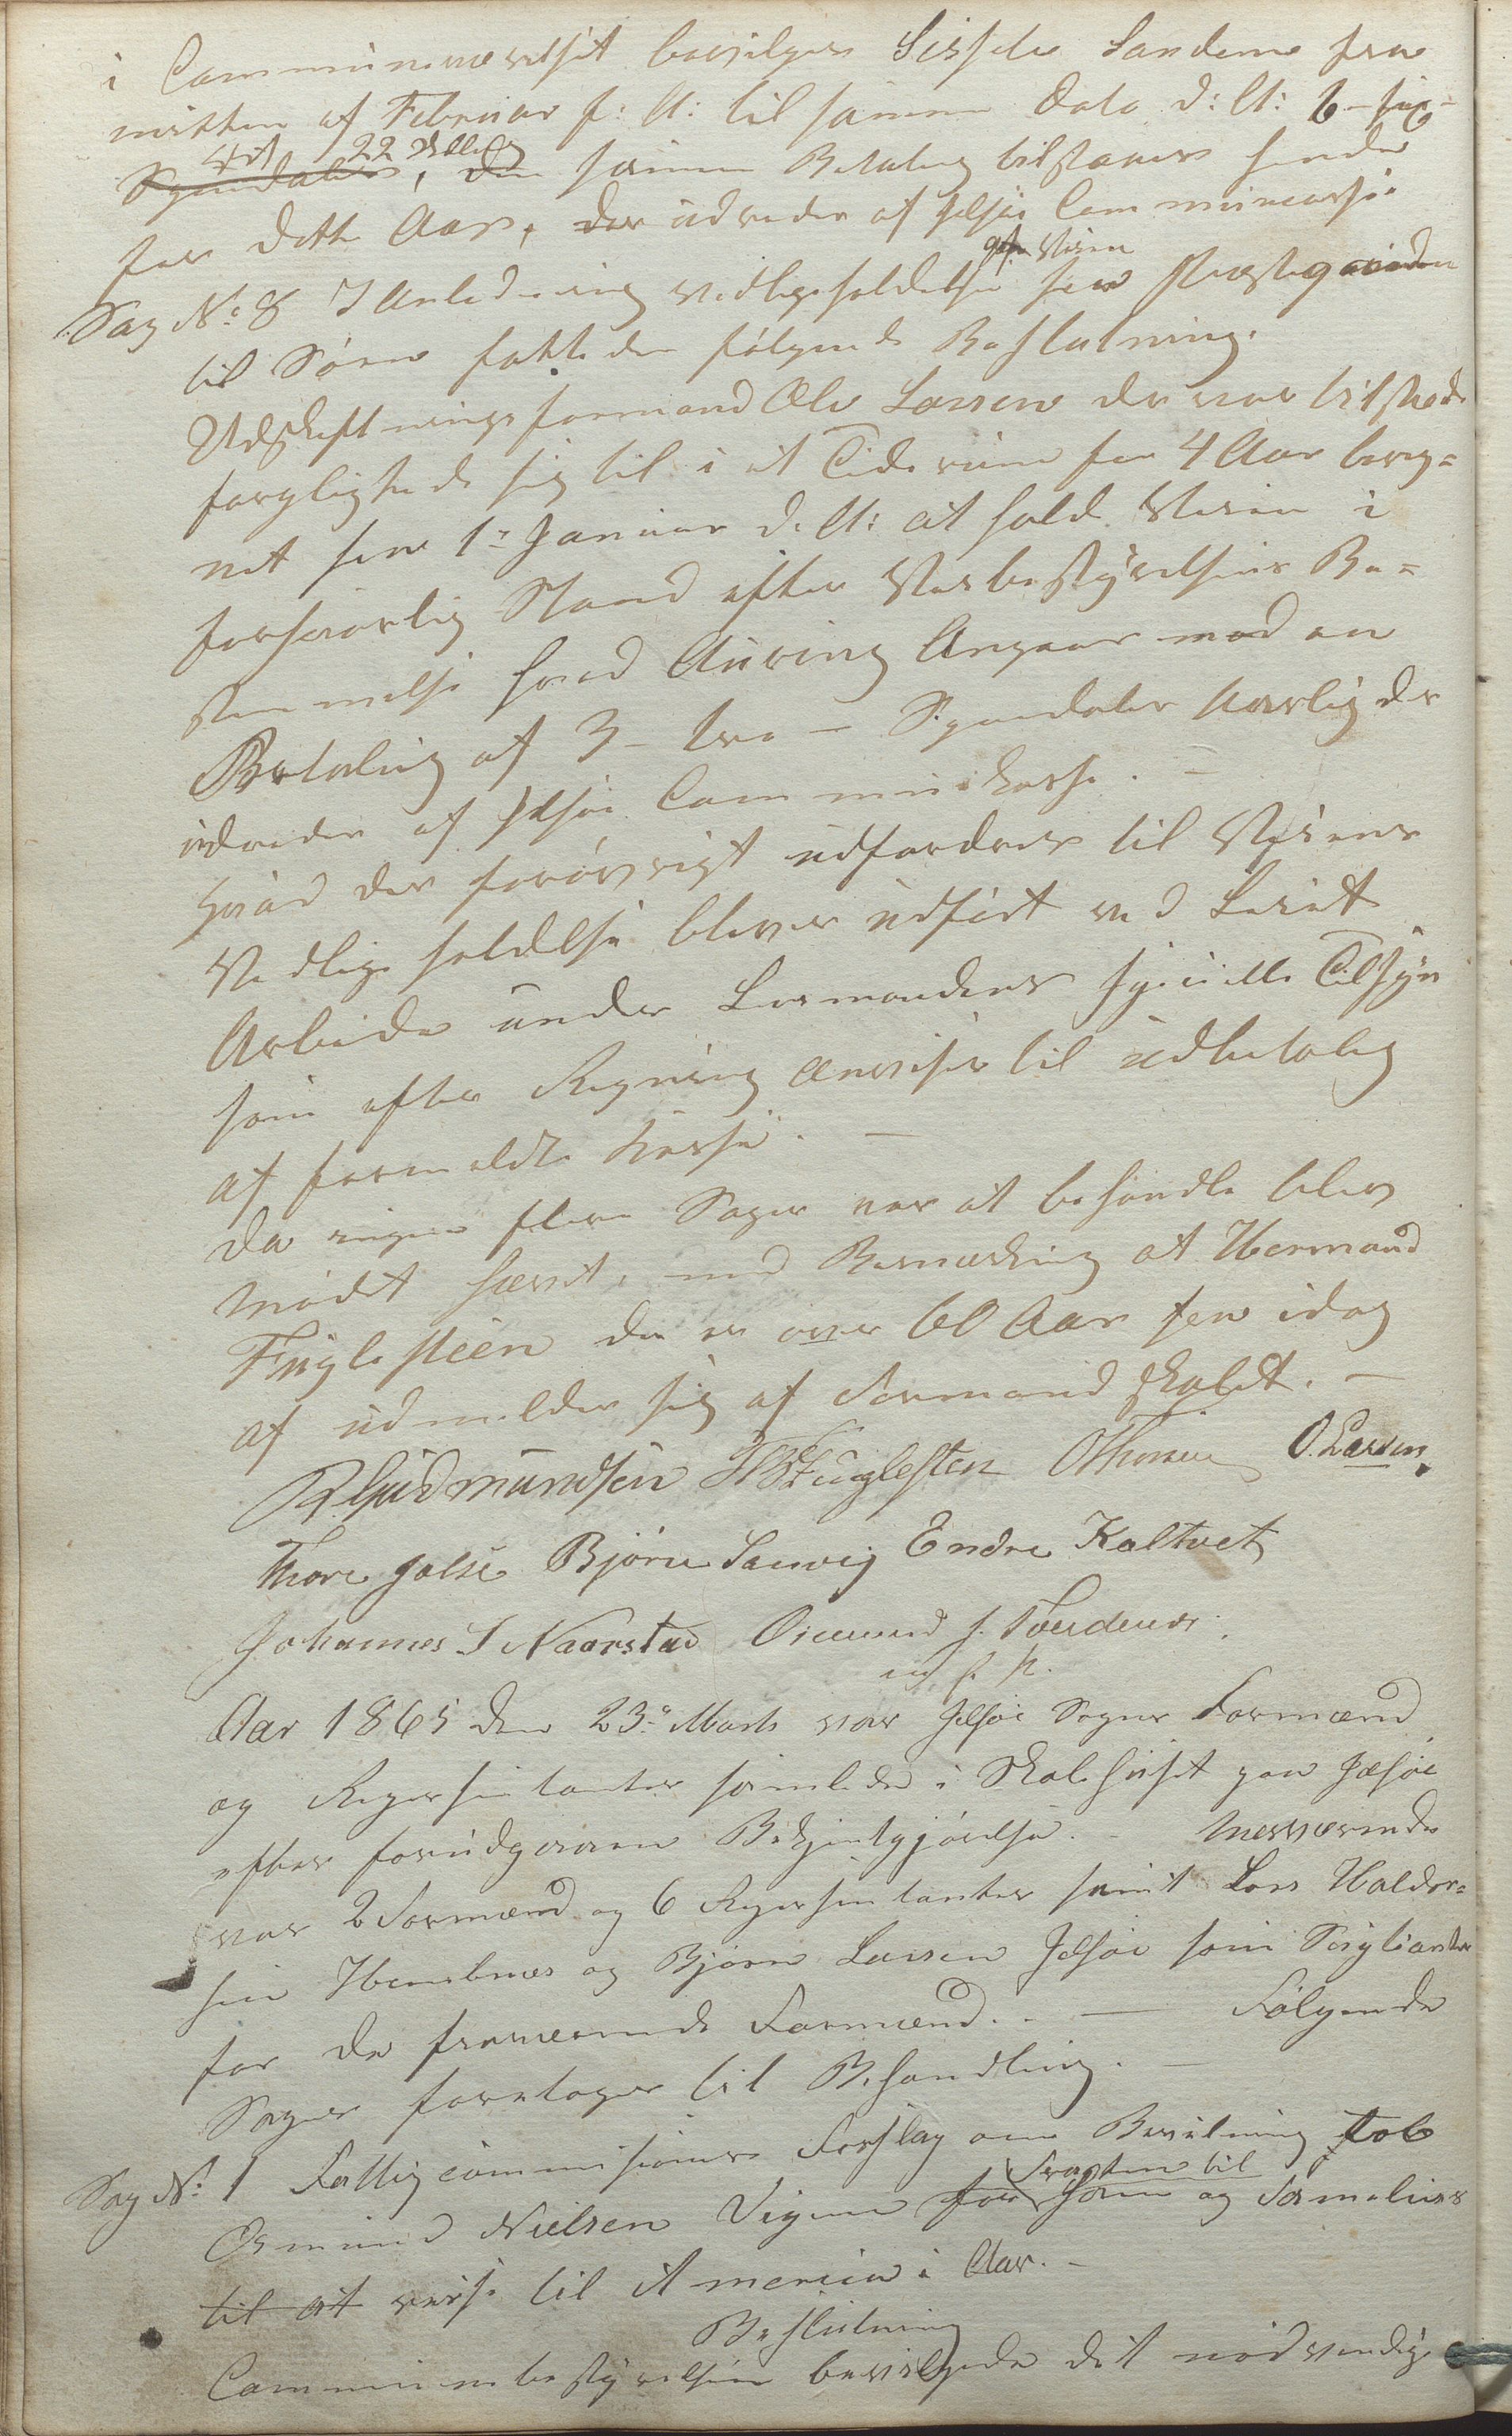 i Communeværelset bevilges Lisbeta Sandene fra
midten af Februar f: A: til samme Dato d: A: 6 – sex –
Spesidaler, 22 Skilling, den samme Betaling tilstaaes hende
for dette Aar, der udredes af Jelsøe Communecasse
Sag No: 8 I Anledning vedligeholdelse af Veien fra Præstegaarden
til Søen fattedes følgende Beslutning.
Udskiftningsformand Ole Larsen der var tilstæde
forpligtede sig til i et Tidsrum for 4 Aar bereg=
net fra 1ste Januar d. A: at holde Veien i
forsvarlig Stand efter Veibestyrelsens Be=
stemmelse hvad Auring Angaar mod en
Betaling af 3 – tre – Speciedaler Aarlig der
udredes af Jelsøe Communekasse. –
Hvad der forøvrigt udfordres til Veiens
Vedligeholdelse bliver udført ved Leiet
Arbeide under Lensmandens specielle Tilsyn
som efter Regning anvises til udbetaling
af formeldte Kasse. –
Da ingen flere Sager var at behandle blev
Mødet hævet, med Bemærkning at Ibermand
Fuglesteen der er over 60 Aar fra idag
af udmelder sig af Formandskabet. –
R Gudmundsen FB Fuglesten OThorsen O. Larsen
Thore Jelse Bjørn Sanvig Endre Kaltvet
Johannes I Naarstad Osmund J. Tvedenes
m f. P.
Aar 1865 den 23de Marts var Jelsøe Sogns Formænd
og Repersentanter samlede i Skolehuset paa Jelsøe
efter forudgaaaen Bekjentgjørelse. – Nærværende
var 2 Formænd og 6 Repersentanter samt Lars Haldor=
sen Hembnes og Bjørn Larsen Jelsøe som Supleanter
for de fraværende Formænd. – Følgende
Sager foretages til Behandling. –
Sag No: 1 Fattigcommisionens Forslag om Bevilning tob
Osmund Nielsen Vignes for Fragten til ham og Familiens
til at reise til America i Aar. –
Beslutning
Communebestyrelsen bevilgede det nødvendige